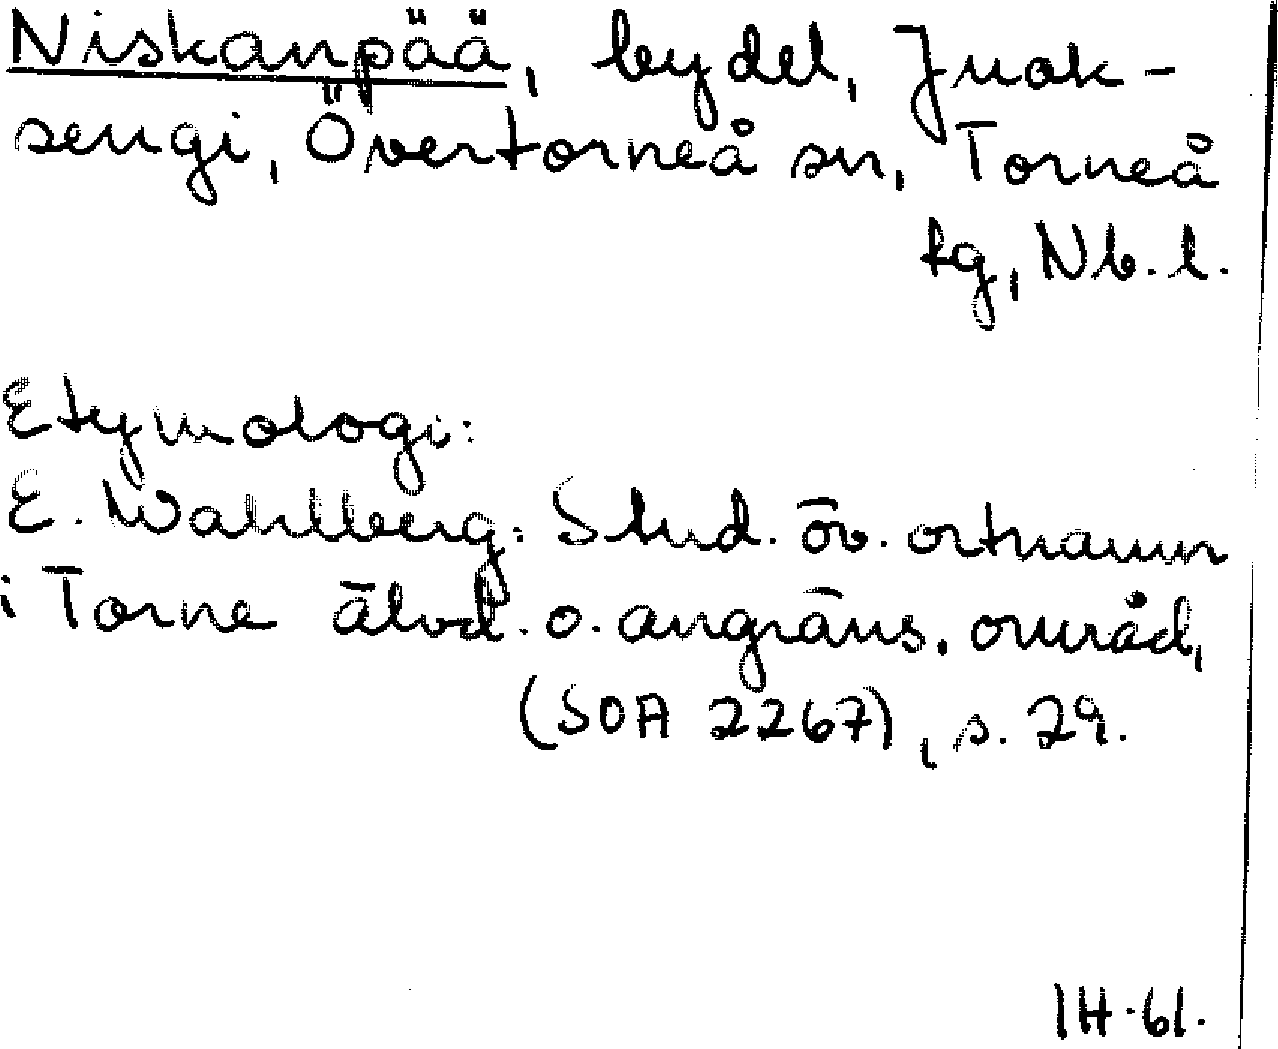 Niskanpää, bydel, Juok-
sengi, Övertorneå sn, Torneå
tg, Nb.l.
Etymologi:
E. Wahlberg: Stud. öv. ortnamn
i Torne älvd. o. angräns. områd,
(SOA 2267), s. 29.
IH-61.